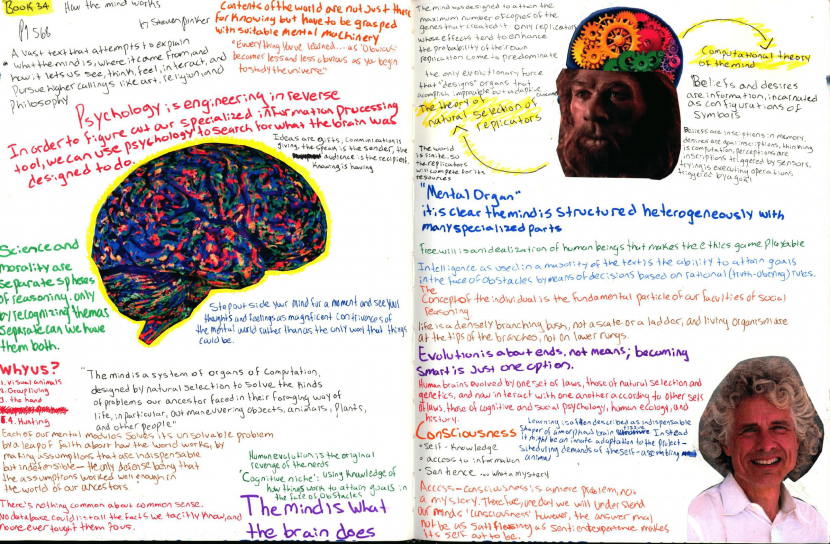 BOOK 34 How the mind works
by Steven Pinker
Pg 566
A vast text that attempts to explain
what the mind is, where it came from, and
how it lets us see, think, feel, interact, and
Pursue higher callings like art, religion, and
Philosophy
Contents of the world are not just there
for knowing but have to be grasped
with suitable mental machinery
"Everything you've learned... as 'Obvious'
becomes less and less obvious as you begin
to study the universe"
Psychology is engineering in reverse
In order to figure out our specialized information processing
tool, we can use psychology to search for what the brain was
designed to do.
Ideas are gifts, communication is
giving, the speaker is the sender, the
audience is the recipient,
knowing is having
Science and
morality are
separate spheres
of reasoning. only
by recognizing them as
separate can we have
them both.
Step outside your mind for a moment and see your
thoughts and feelings as magnificent contrivances of
the mental world rather than as the only way that things
could be.
Why us?
1. visual animals
2. Group living
3. the hand
4. Hunting
"The mind is a system of organs of computation,
designed by natural selection to solve the kinds
of problems our ancestor faced in their foraging way of
life, in particular, out maneuvering objects, animals, plants,
and other people"
Each of our mental modulos solves its unsolvable problem
by a leap of faith about how the world works, by
making assumptions that are indispensable
but indefensible - the only defense being that
the assumptions worked well enough in
the world of our ancestors.
There's nothing common about common sense.
No database could list all the facts we tacitly know, and
no one ever taught them to us.
Human evolution is the original
revenge of the nerds
"Cognitive niche": Using knowledge of
how things work to attain goals in
the face of obstacles
The Mind is what
the brain does
The mind was designed to attain the
maximum number of copies of the
genes that created it. Only replicators
whose effects tend to enhance
the probability of their own
replication come to predominate
the only evolutionary force
that "designs" organs that
accomplish improbable but adaptive
The theory of
natural selection of
replicators
The world
is finite, so
the replicators
will compete for its
resources
Computational theory
of the mind
Beliefs and desires
are information, incarnated
as configurations of
symbols
Beliefs are inscriptions in memory,
desires are goal inscriptions, thinking
is computation, perceptions are
inscriptions triggered by sensors,
trying is executing operations
triggered by a goal
"Mental Organ"
it is clear the mind is structured heterogeneously with
many specialized parts
free will is an idealization of human beings that makes the ethics game playable
Intelligence as used in a majority of the text is the ability to attain goals
in the face of obstacles by means of decisions based on rational (truth-obeying) rules.
The
Concept of the individual is the fundamental particle of our faculties of social
reasoning
life is a densely branching bush, not a scale or a ladder, and living organisms are
at the tips of the branches, not on lower rungs.
Evolution is about ends, not means; becoming
smart is just one option.
Human brains evolved by one set of laws, those of natural selection and
genetics, and now interact with one another according to other sets
of laws, those of cognitive and social psychology, human ecology, and
history.
Consciousness
• self-knowledge
• access to information
• Sentience
Learning is often described as indispensable
shaper of amorphous brain tissue. Instead
it might be an innate adaptation to the project-
scheduling demands of the self-assembling
animal
Access-consciousness is a mere problem, not
a mystery. Therefore, one day we will understand
our minds' consciousness however, the answer may
not be as satisfying as sentient experience makes
its self out to be.